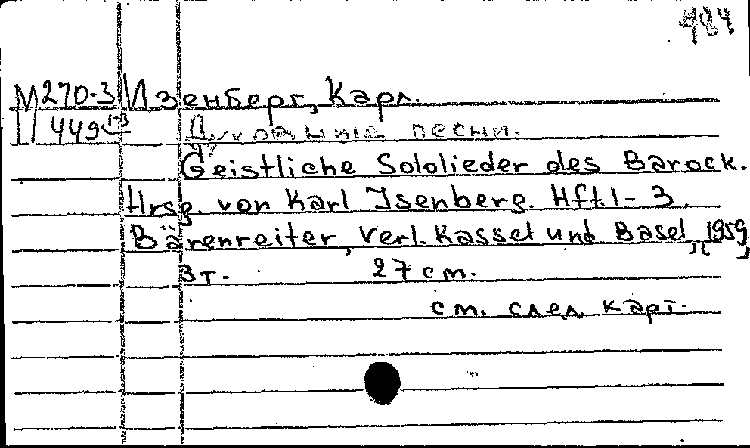 484
М270-3 Изенберг, Карл.
II 449 1-3 Духовные песни.
Geistliche Sololieder des Barock.
Hrsg. von Karl Isenberg. Hft. 1-3.
Bärenreiter, Verl. Kassel und Basel, 1959,
3 т. 27 cm.
см. след. карт.